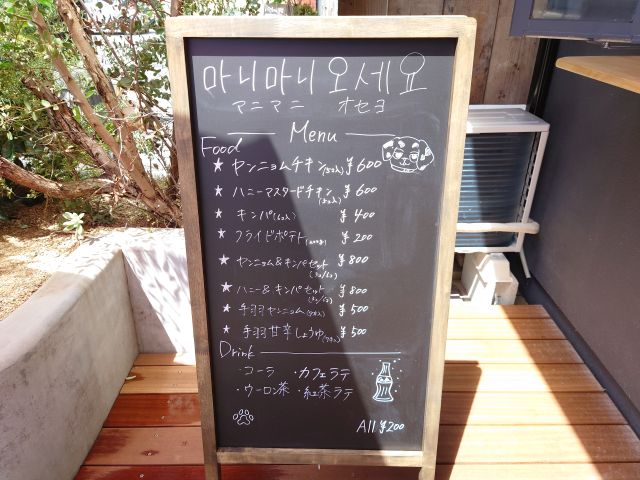 마니마니 오세요
マニマニ オセヨ
Menu
Food
★ ヤンニョムチキン ¥600
★ ハニーマスタードチキン ¥600
★ キンパ ¥400
★ フライドポテト ¥200
★ ヤンニョム&キンパセット ¥800
★ ハニー&キンパセット ¥800
★ 手羽ヤンニョム ¥500
★ 手羽甘辛しょうゆ ¥500
Drink
・コーラ ・カフェラテ
・ウーロン茶 ・紅茶ラテ
All ¥200